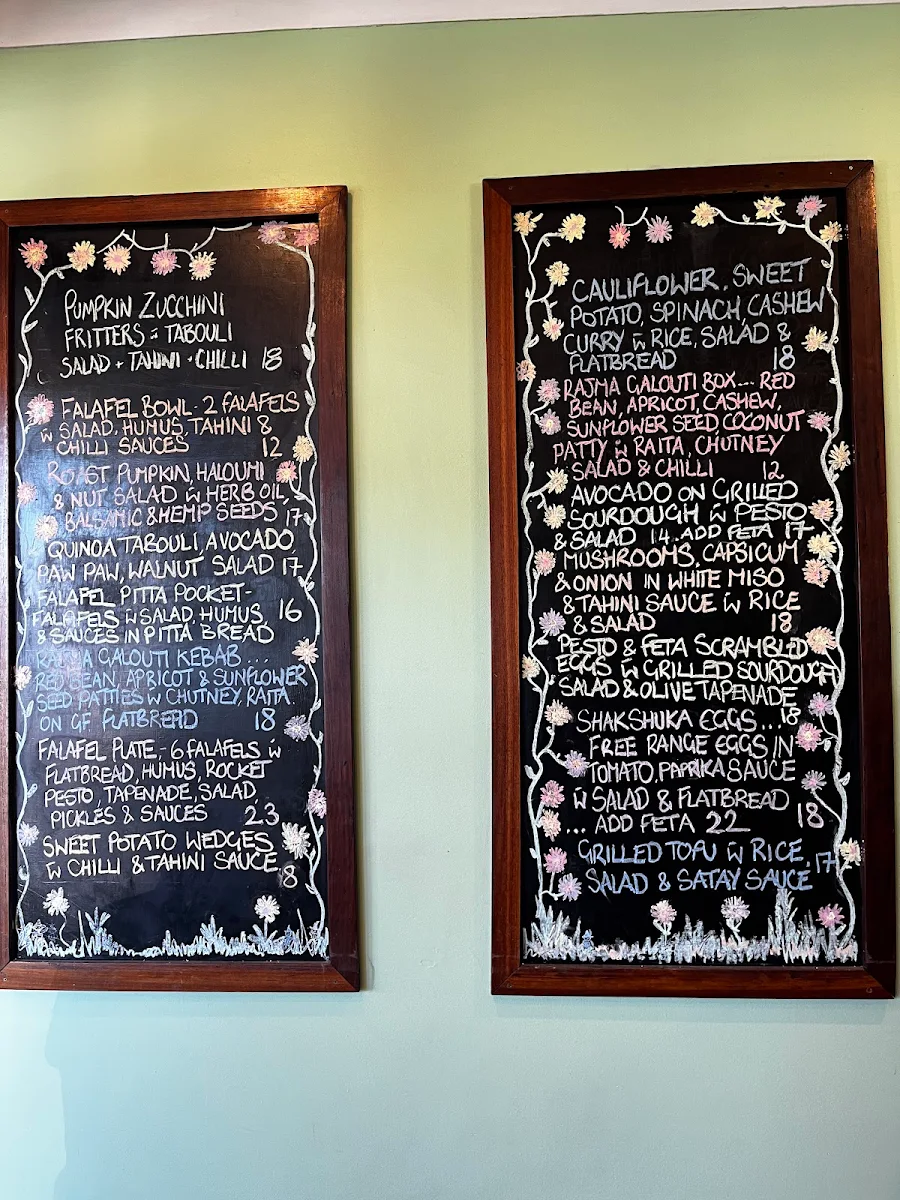 PUMPKIN ZUCCHINI
FRITTERS w TABOULI
SALAD + TAHINI + CHILLI 18
FALAFEL BOWL - 2 FALAFELS
w SALAD, HUMUS, TAHINI &
CHILLI SAUCES 12
ROAST PUMPKIN, HALOUMI
& NUT SALAD w HERB OIL,
BALSAMIC & HEMP SEEDS 17
QUINOA TABOULI, AVOCADO,
PAW PAW, WALNUT SALAD 17
FALAFEL PITTA POCKET-
FALAFELS w SALAD, HUMUS 16
& SAUCES IN PITTA BREAD
RAJMA GALOUTI KEBAB ...
RED BEAN, APRICOT & SUNFLOWER
SEED PATTIES w CHUTNEY, RAITA
ON GF FLATBREAD 18
FALAFEL PLATE,- 6 FALAFELS w
FLATBREAD, HUMUS, ROCKET
PESTO, TAPENADE, SALAD,
PICKLES & SAUCES 23
SWEET POTATO WEDGES
w CHILLI & TAHINI SAUCE 18
CAULIFLOWER, SWEET
POTATO, SPINACH, CASHEW
CURRY w RICE, SALAD &
FLATBREAD 18
RAJMA GALOUTI BOX... RED
BEAN, APRICOT, CASHEW,
SUNFLOWER SEED COCONUT
PATTY w RAITA, CHUTNEY
SALAD & CHILLI 12
AVOCADO ON GRILLED
SOURDOUGH w PESTO
& SALAD 14..ADD FETA 17
MUSHROOMS, CAPSICUM
& ONION IN WHITE MISO
& TAHINI SAUCE w RICE
& SALAD 18
PESTO & FETA SCRAMBLED
EGGS w GRILLED SOURDOUGH
SALAD & OLIVE TAPENADE
18
SHAKSHUKA EGGS...
FREE RANGE EGGS IN
TOMATO, PAPRIKA SAUCE
w SALAD & FLATBREAD 18
... ADD FETA 22
GRILLED TOFU w RICE, 17
SALAD & SATAY SAUCE